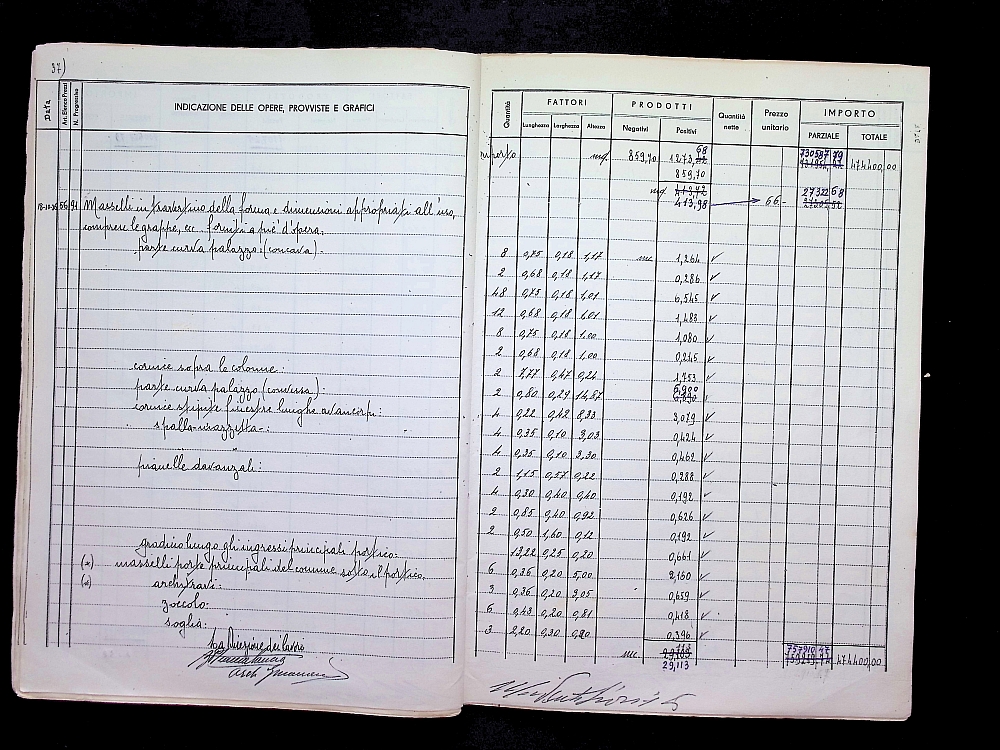 37)
Data
Art. Elenco Prezzi
N. Progressivo
INDICAZIONE DELLE OPERE, PROVVISTE E GRAFICI
56 91 Masselli in travertino della forma e dimensioni appropriati all'uso,
comprese le grappe, ecc. forniti a piè d'opera:
parte curva palazzo: (concava)
cornice sopra le colonne:
parte curva palazzo (convessa):
cornice stipite finestre lunghe avancorpi:
spalla mazzetta:
pianelle davanzali:
gradino lungo gli ingressi principali portico:
(*) masselli porte principali del comune sotto il portico:
(*) architravi:
zoccolo:
soglia:
La Direzione dei lavori
Arch.
Quantità
FATTORI
Lunghezza Larghezza Altezza
PRODOTTI
Negativi Positivi
Quantità nette
Prezzo unitario
IMPORTO
PARZIALE TOTALE
riporto mq. 859,70 1273,68 730587,79 474400,00
859,70
mq. 413,42 27322,68
413,98 66-
8 0,75 0,18 1,17 mc. 1,264 ✓
2 0,68 0,18 1,17 0,286 ✓
48 0,75 0,18 1,01 6,545 ✓
12 0,68 0,18 1,01 1,483 ✓
8 0,75 0,18 1,00 1,080 ✓
2 0,68 0,18 1,00 0,245 ✓
2 7,77 0,47 0,24 1,753 ✓
2 0,80 0,29 14,87 6,900
4 0,22 0,42 8,33 3,079 ✓
4 0,35 0,10 3,03 0,424 ✓
4 0,35 0,10 3,30 0,462 ✓
2 1,15 0,57 0,22 0,288 ✓
4 0,30 0,40 0,40 0,192 ✓
2 0,85 0,40 0,92 0,626 ✓
2 0,50 1,60 0,12 0,192 ✓
13,22 0,25 0,20 0,661 ✓
6 0,36 0,20 5,00 2,160 ✓
3 0,36 0,20 3,05 0,659 ✓
6 0,43 0,20 0,81 0,418 ✓
3 2,20 0,30 0,20 0,396 ✓
mc. 29,113 757910,47 474400,00